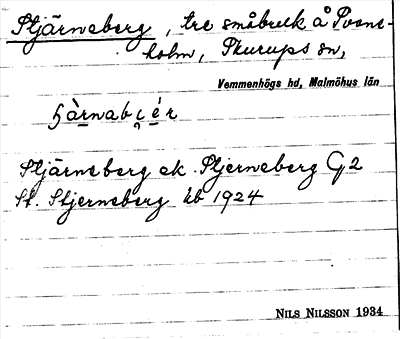 Stjärneberg, tre småbruk å Svens-
holm, Skurups sn,
Vemmenhögs hd, Malmöhus län
Stjärneberg ek. Stjerneberg G2
St. Stjerneberg kb 1924
NILS NILSSON 1934